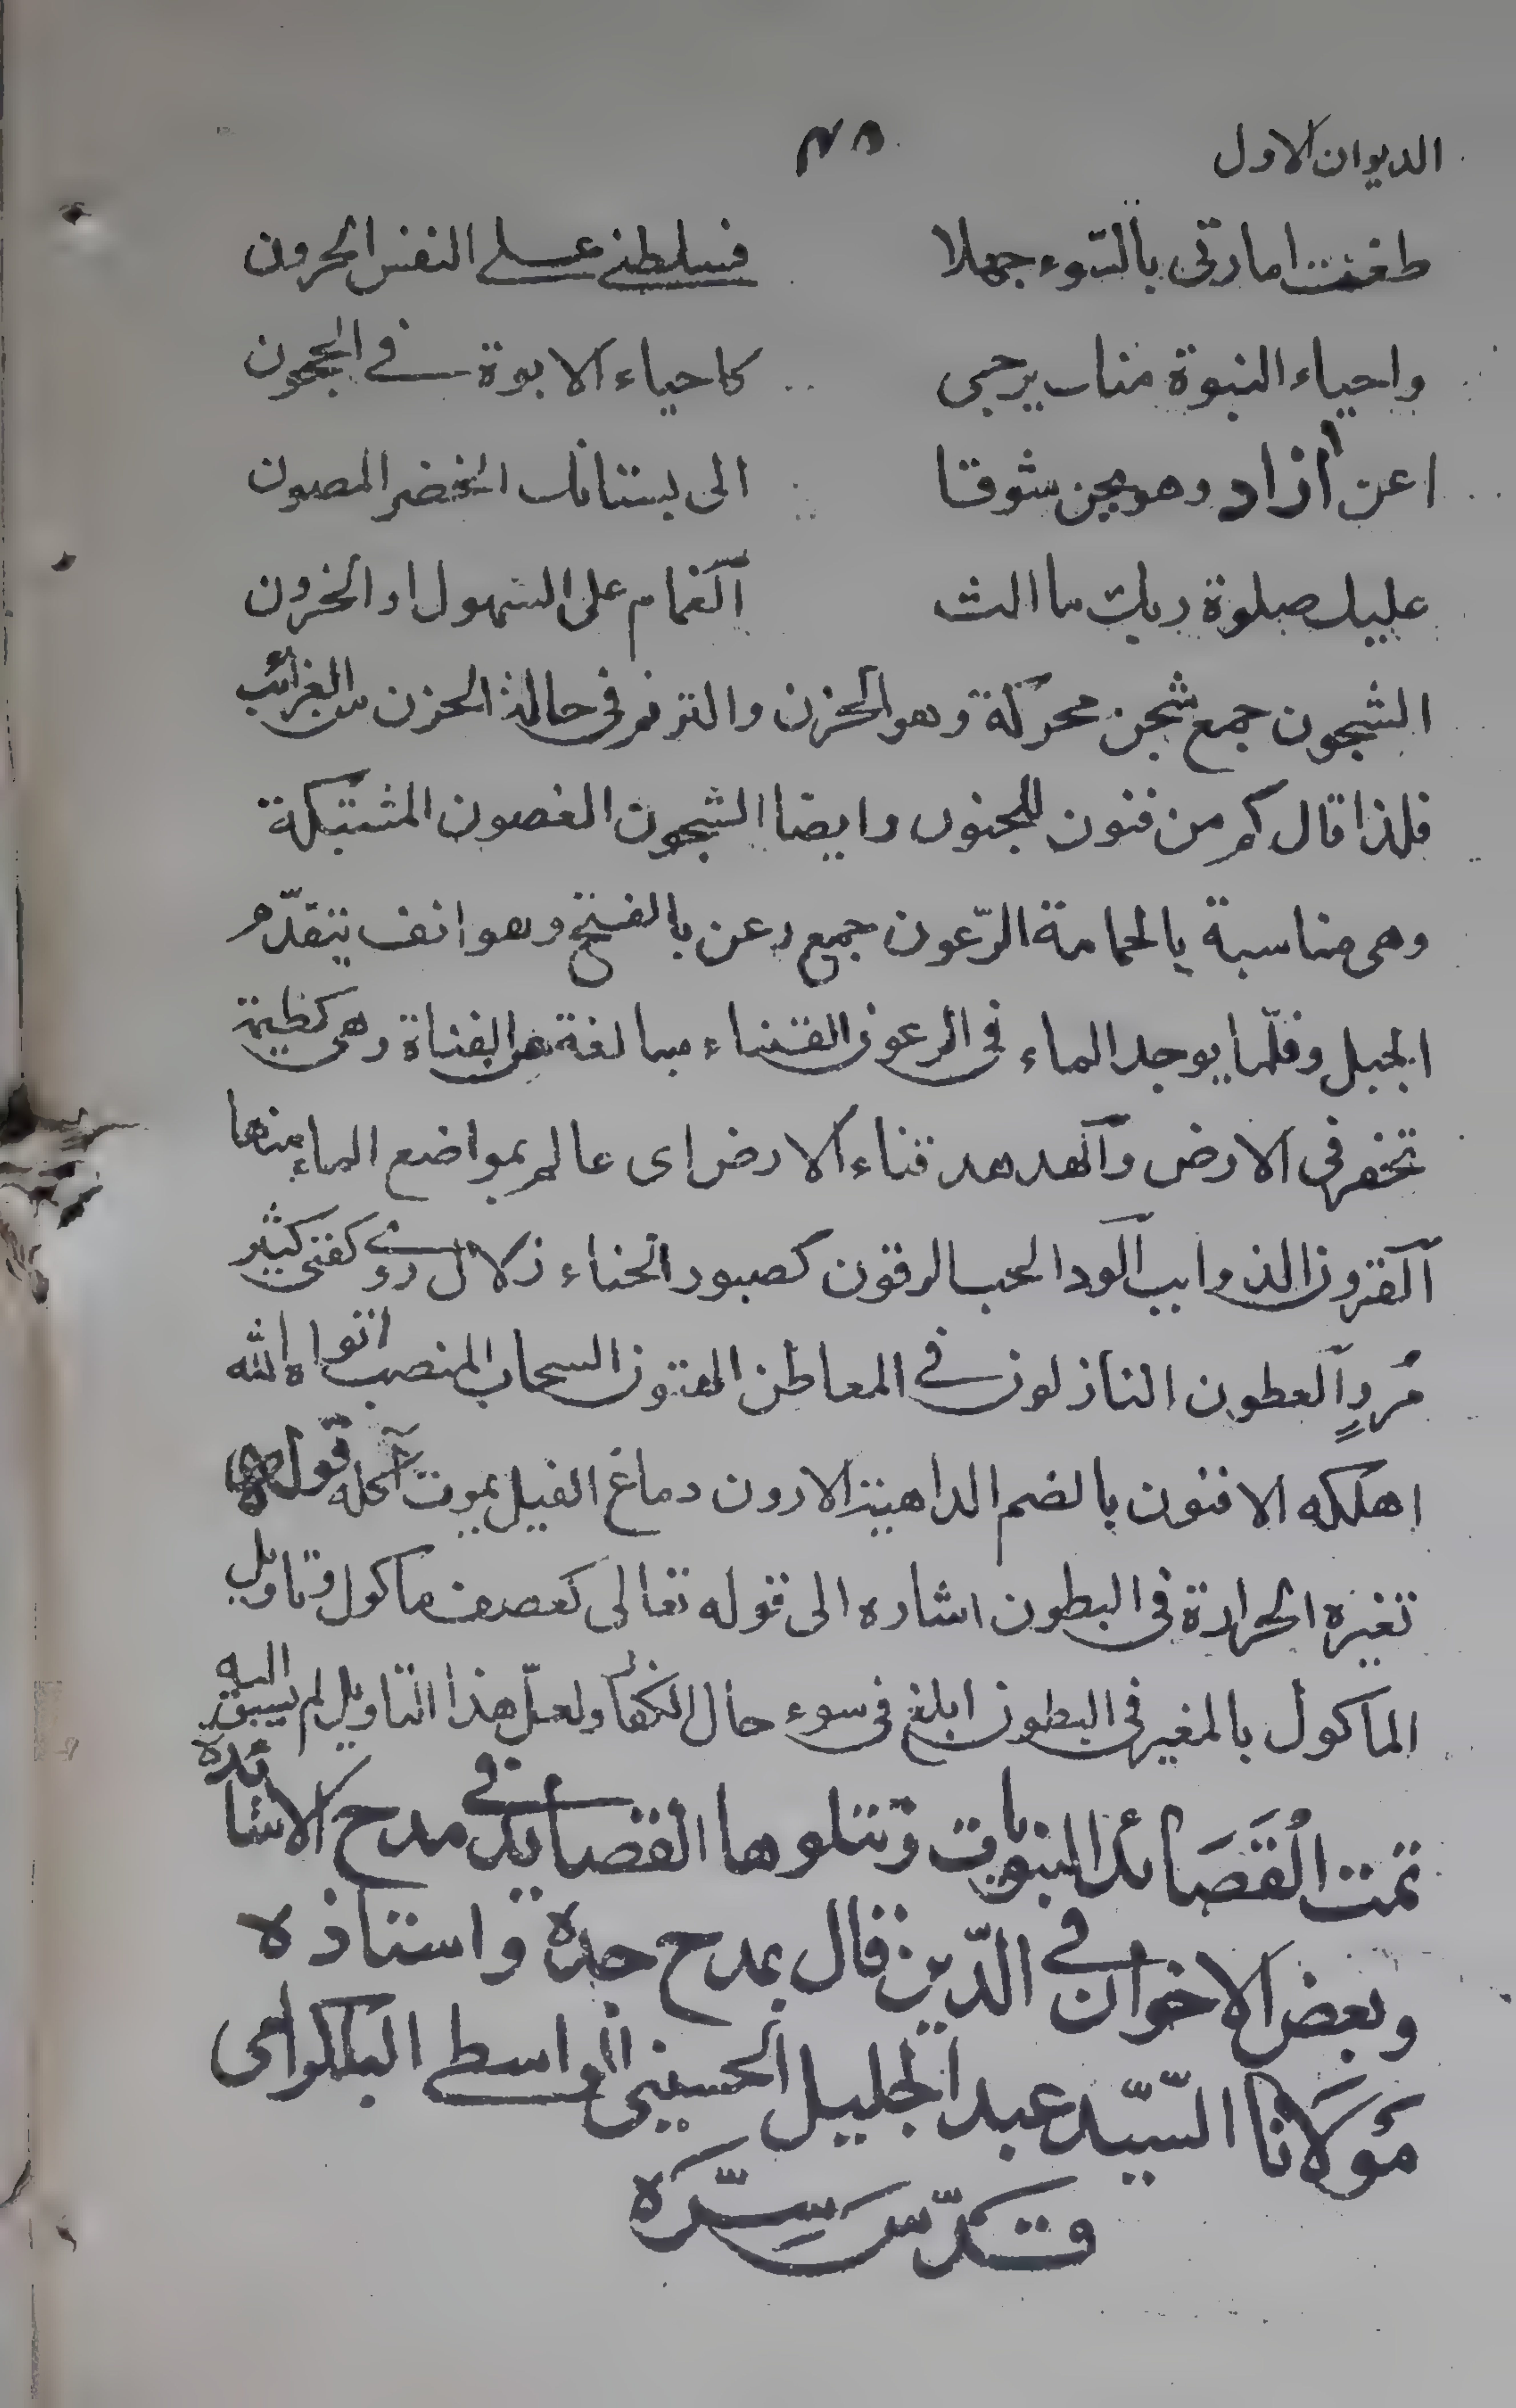 الديوان الاول ٣٨
طغت امارتى بالسّوء جهلا فسلطنى على النفس الحرون
واحياء النبوة منك يرجى كاحياء الابوة فى الحجون
اعن آزاد وهو يحن شوقا الى بستانك الخضر المصون
عليك صلوة ربك ما الث الغمام على السهول او الحزون
الشجون جمع شجن محركة وهو الحزن والترنم فى حالة الحزن من الغرائب
فلذا قال كم من فنون للجنون وايضا الشجون الغصون المشتبكة
وهى مناسبة بالحمامة الرّعون جمع رعن بالفتح وهو انف يتقدّم
الجبل وقلّما يوجد الماء فى الرعون القناء مبالغة من القناة وهى كظيمة
تحفر فى الارض والهدهد قناء الارض اى عالم بمواضع الماء منها
القرون الذوايب الود الحب الرقون كصبور الحناء زلال روى كغنى كثير
مُروٍ العطون النازلون فى المعاطن الهتون السحاب المنصب اتواه الله
اهلكه الافنون بالضم الداهية الارون دماغ الفيل يموت آكله قوله
تغيره الحرارة فى البطون اشاره الى قوله تعالى كعصف ماكول وتاويل
الماكول بالمغير فى البطون ابلغ فى سوء حال الكفار ولعلّ هذا التاويل لم يسبق اليه
تمت الْقَصَائد النبويات وتتلوها القصايد فى مدح الاساتذة
وبعض الاخوان فى الدّين قال يمدح جده واستاذه
مَوْلَانا السّيّد عبد الجليل الحسينى الواسطى البلكرامى
قدّسَ سِرّه